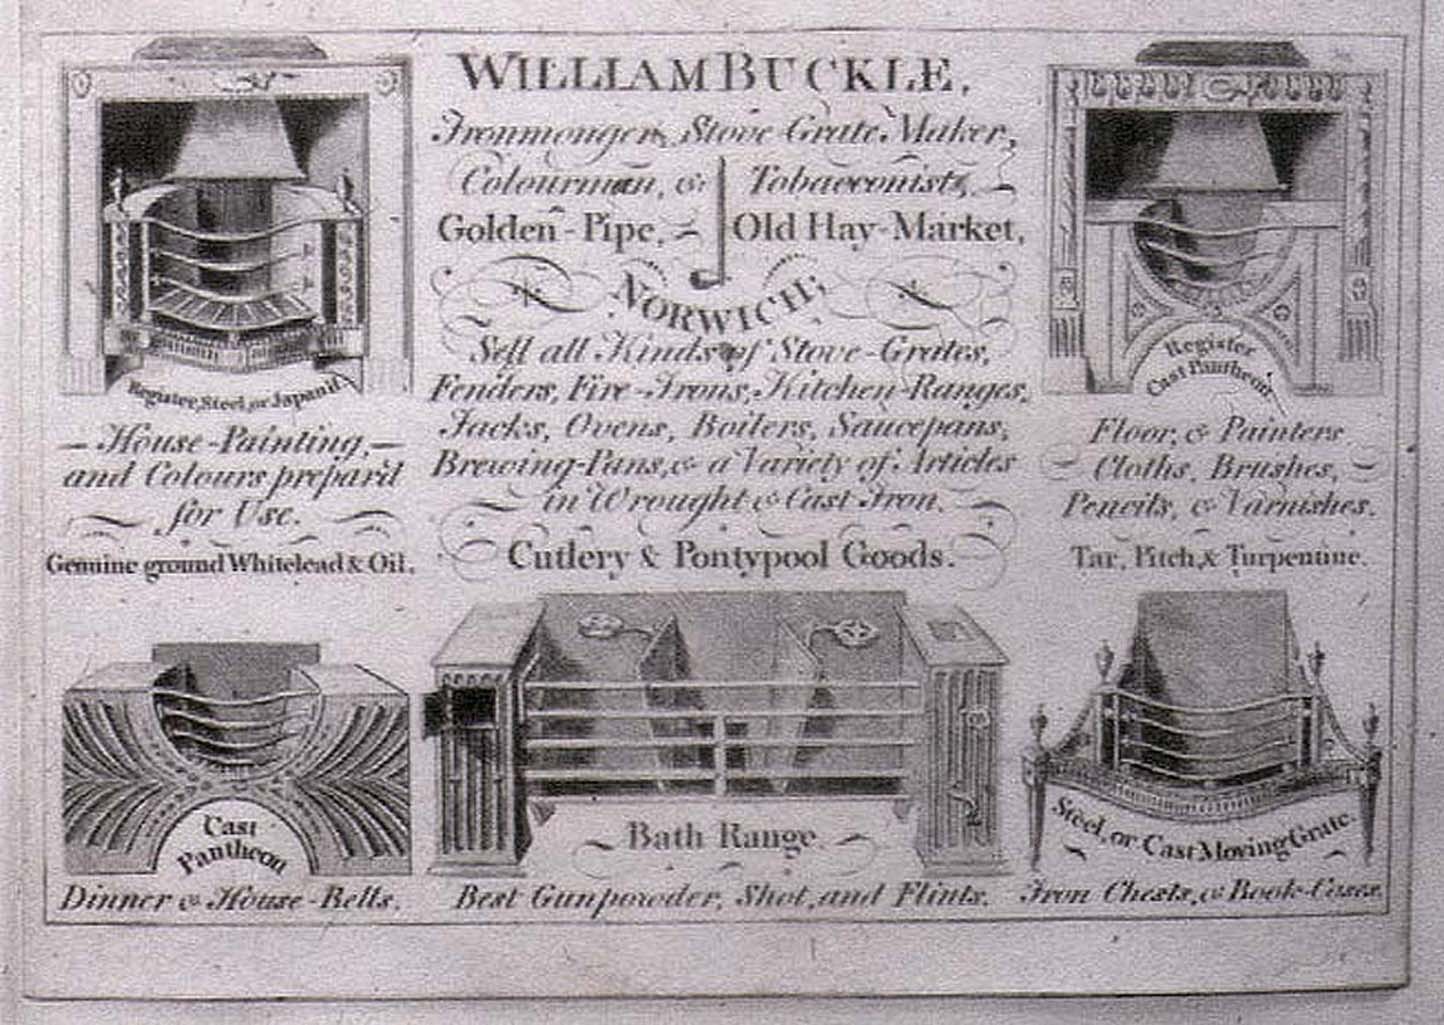 WILLIAM BUCKLE,
Ironmonger, Stove Grate Maker,
Colourman, & Tobacconist,
Golden-Pipe, Old Hay-Market,
NORWICH;
Sell all Kinds of Stove-Grates,
Fenders, Fire-Irons, Kitchen-Ranges,
Jacks, Ovens, Boilers, Saucepans,
Brewing-Pans, & a Variety of Articles
in Wrought & Cast Iron.
Cutlery & Pontypool Goods.
Register, Steel, or Japan'd
House-Painting,
and Colours prepar'd
for Use.
Genuine ground Whitelead & Oil.
Register
Cast Pantheon
Floor, & Painters
Cloths, Brushes,
Pencils, & Varnishes.
Tar, Pitch, & Turpentine.
Cast
Pantheon
Dinner & House-Bells.
Bath Range
Best Gunpowder, Shot, and Flints.
Steel, or Cast Moving Grate.
Iron Chests, & Book-Cases.